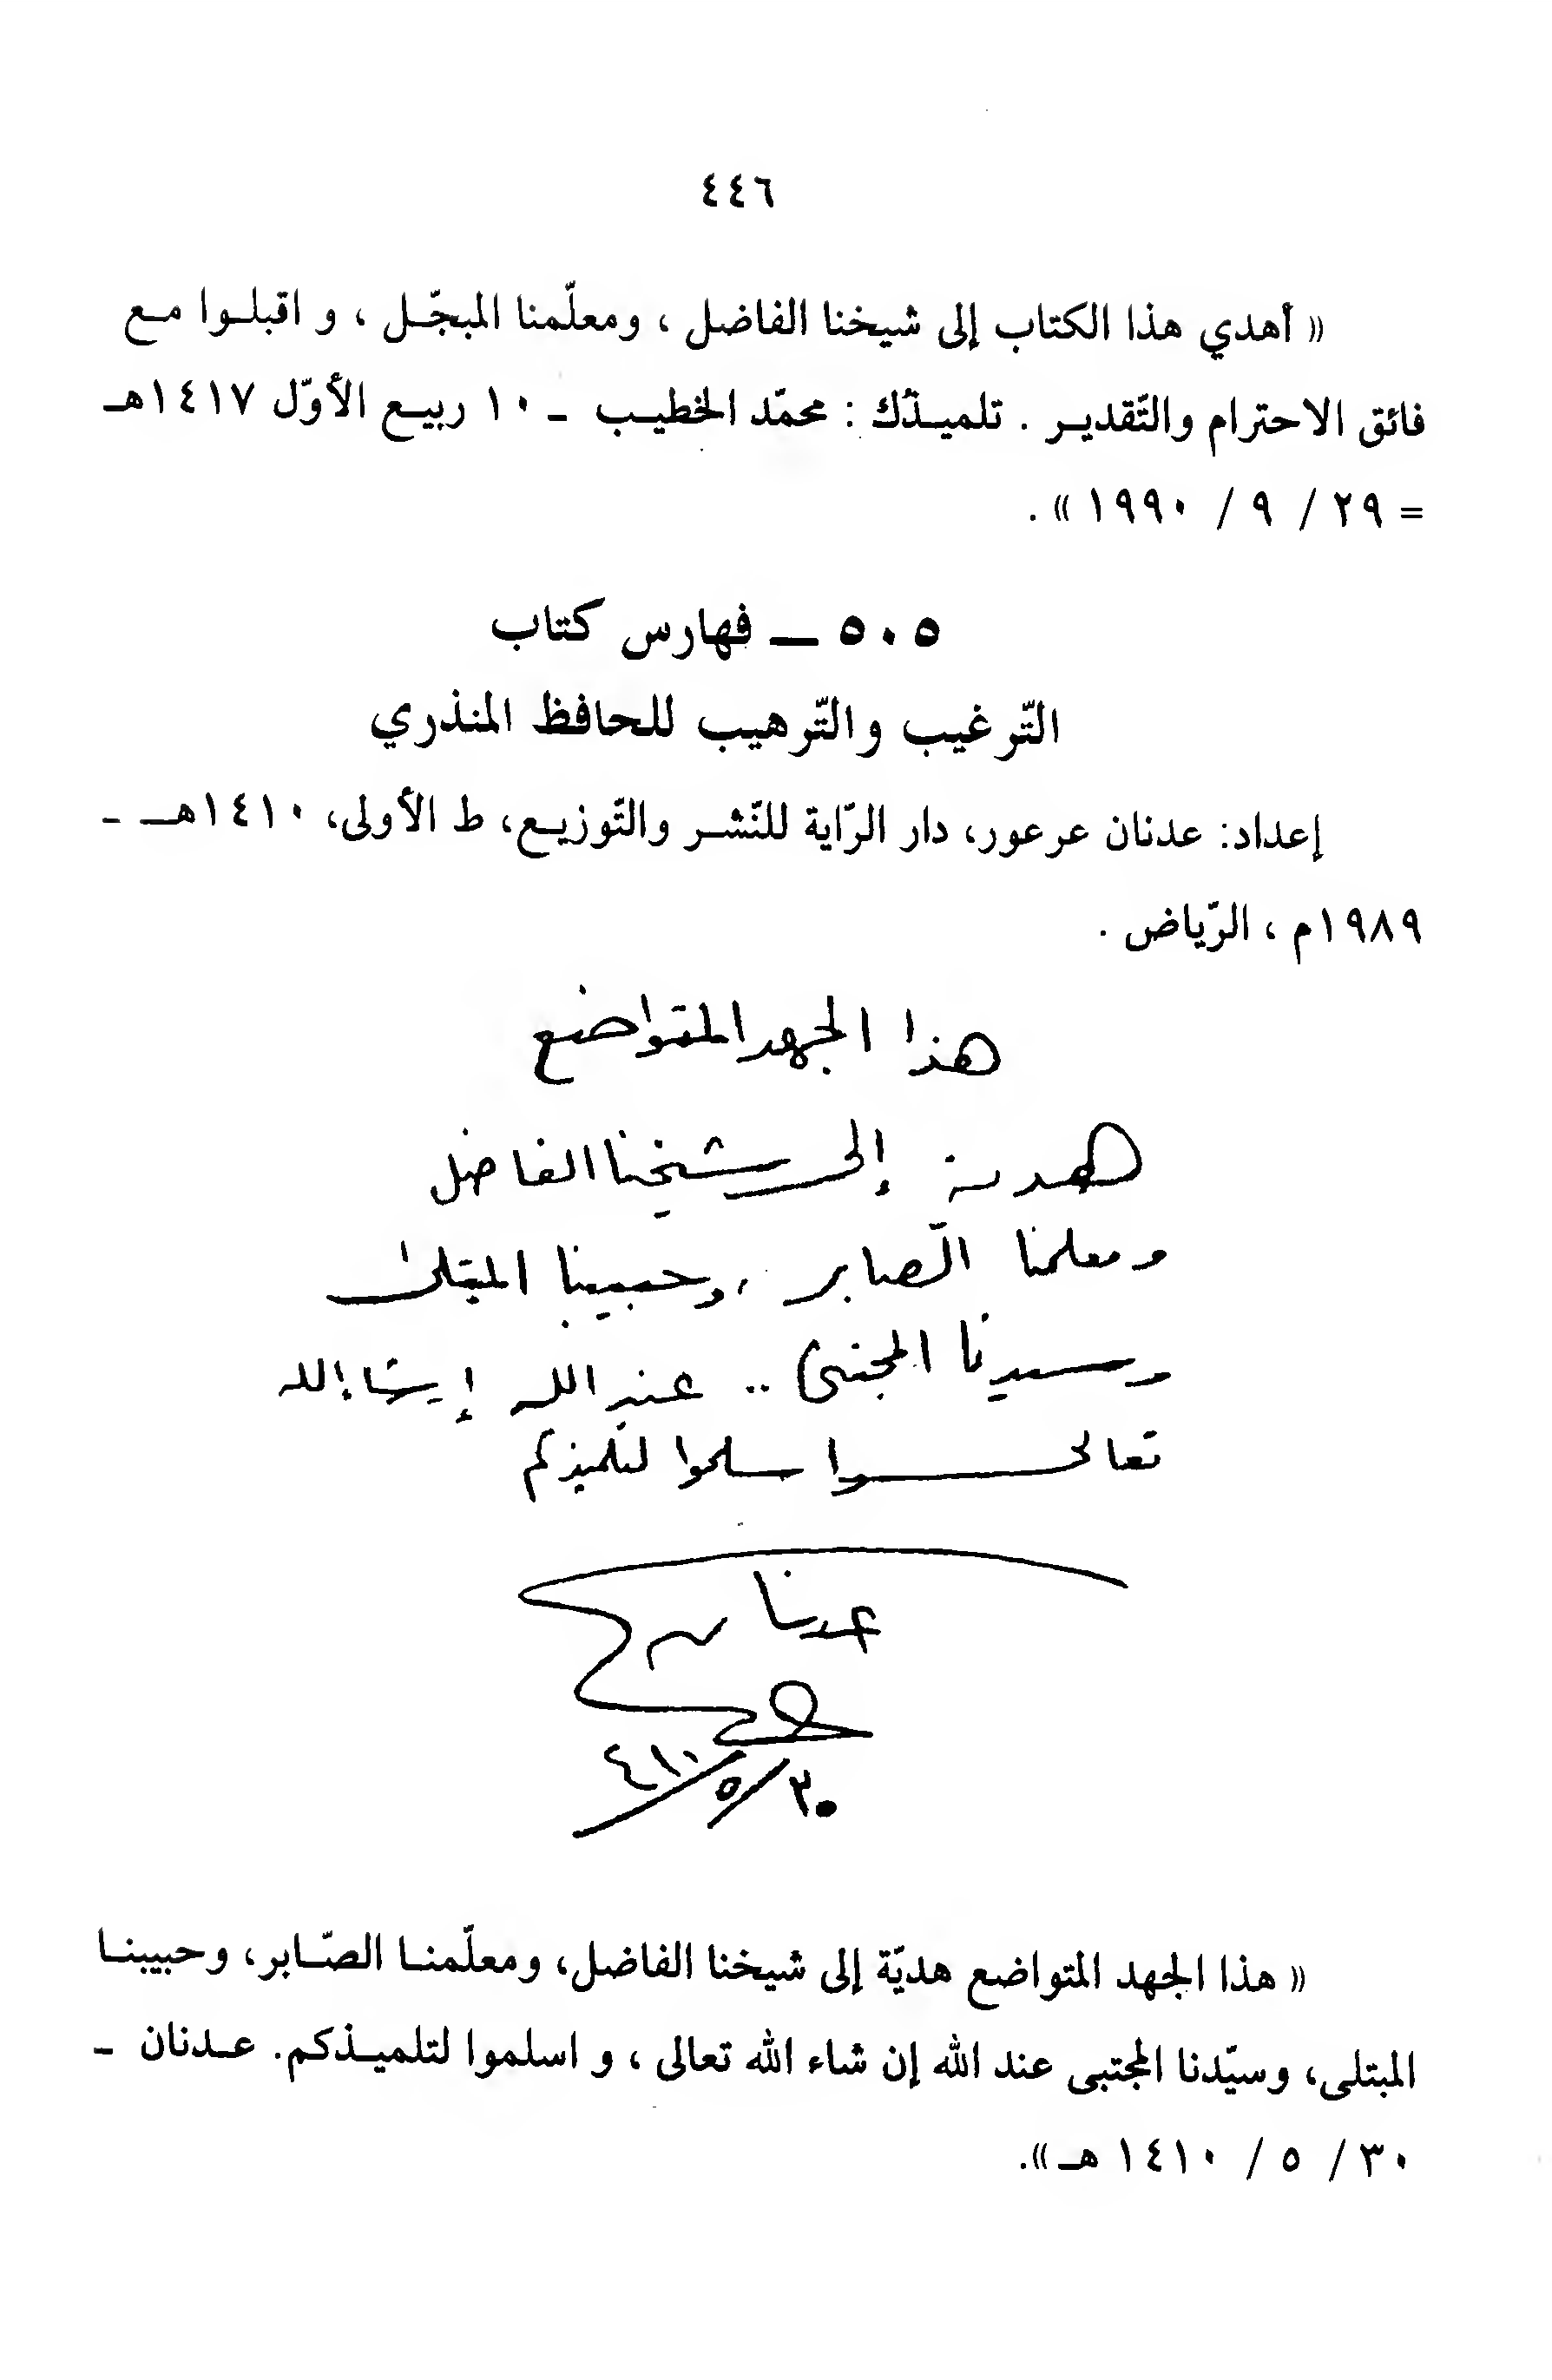 ٤٤٦
« أهدي هذا الكتاب إلى شيخنا الفاضل ، ومعلّمنا المبجّل ، و اقبلوا مع
فائق الاحترام والتّقدير . تلميذُك : محمّد الخطيب - ١٠ ربيع الأوّل ١٤١٧هـ
= ٢٩ / ٩ / ١٩٩٠ » .
٥٠٥ – فهارس كتاب
التّرغيب والتّرهيب للحافظ المنذري
إعداد: عدنان عرعور، دار الرّاية للنّشر والتّوزيع، ط الأولى، ١٤١٠هـ -
١٩٨٩م ، الرّياض .
هذا الجهد المتواضع
هدية إلى شيخنا الفاضل
ومعلمنا الصّابر ، وحبيبنا المبتلى
وسيدنا المجتبى .. عند الله إن شاء الله
تعالى واسلموا لتلميذكم
عدنان
٣٠/٥/٤١٠
« هذا الجهد المتواضع هديّة إلى شيخنا الفاضل، ومعلّمنا الصّابر، وحبيبنا
المبتلى، وسيّدنا المجتبى عند الله إن شاء الله تعالى ، و اسلموا لتلميذكم. عدنان -
٣٠ / ٥ / ١٤١٠ هـ ».